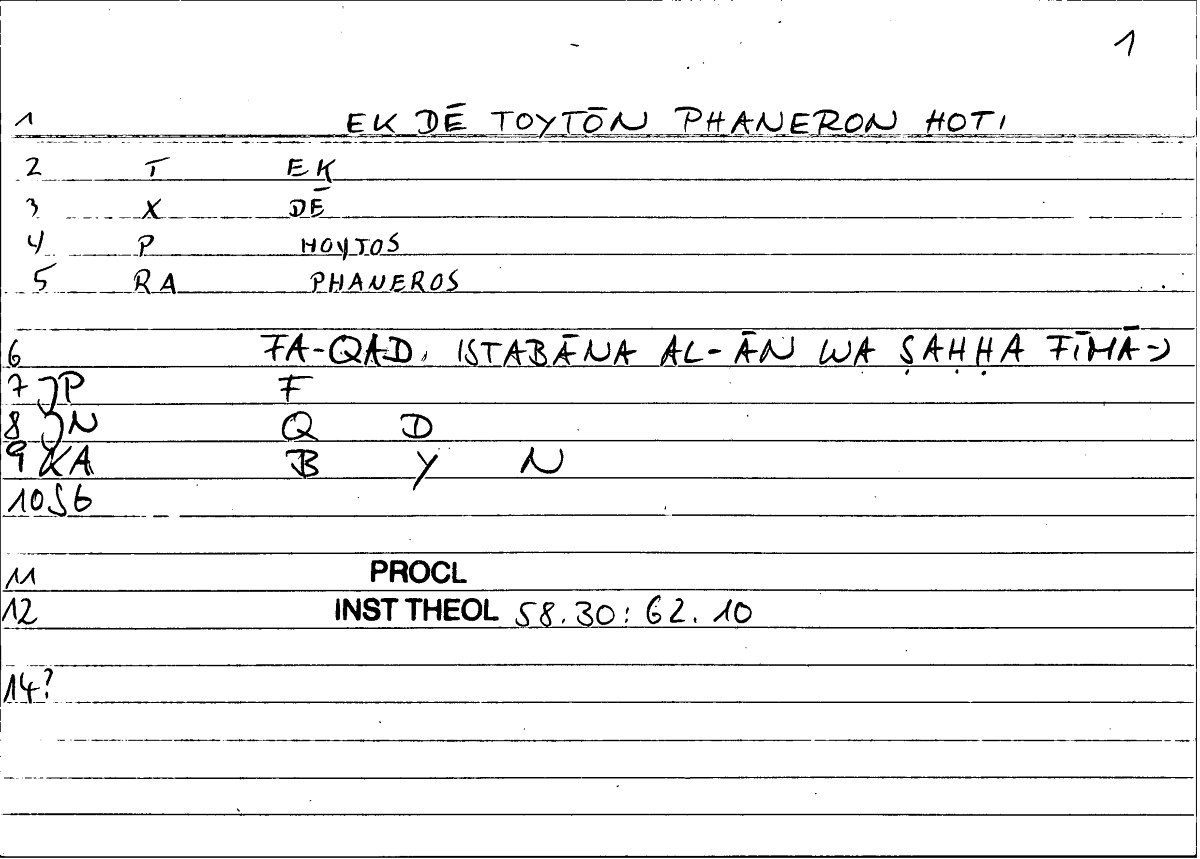 1
1 EK DĒ TOYTŌN PHANERON HOTI
2 T EK
3 X DĒ
4 P HOYTOS
5 RA PHANEROS
6 FA-QAD ISTABĀNA AL-ĀN WA ṢAḤḤA FĪMĀ→
7 JP F
8 JN Q D
9 KA B Y N
10 S6
11 PROCL
12 INST THEOL 58.30:62.10
14?